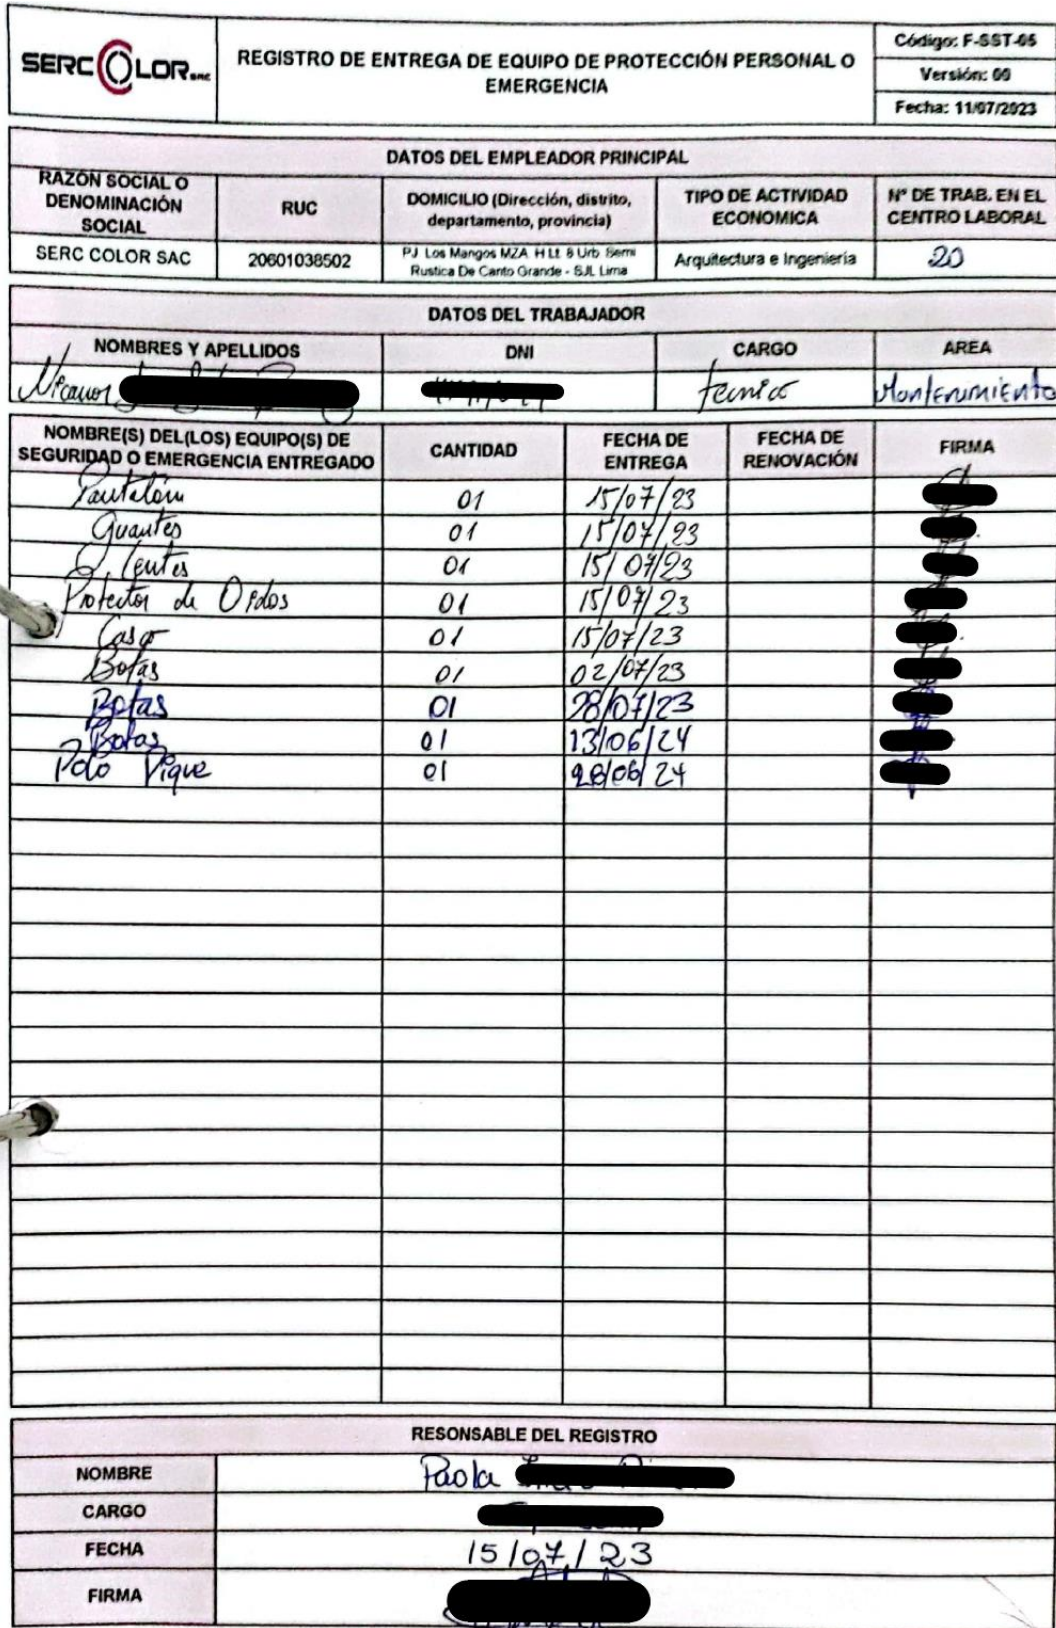 SERC COLOR SAC
REGISTRO DE ENTREGA DE EQUIPO DE PROTECCIÓN PERSONAL O EMERGENCIA
Código: F-SST-05
Versión: 00
Fecha: 11/07/2023
DATOS DEL EMPLEADOR PRINCIPAL
RAZÓN SOCIAL O DENOMINACIÓN SOCIAL | RUC | DOMICILIO (Dirección, distrito, departamento, provincia) | TIPO DE ACTIVIDAD ECONOMICA | Nº DE TRAB. EN EL CENTRO LABORAL
SERC COLOR SAC | 20601038502 | PJ Los Mangos MZA. H Lt. 8 Urb Semi Rustica De Canto Grande - SJL Lima | Arquitectura e Ingeniería | 20
DATOS DEL TRABAJADOR
NOMBRES Y APELLIDOS | DNI | CARGO | AREA
Nicanor | | tecnico | Mantenimiento
NOMBRE(S) DEL(LOS) EQUIPO(S) DE SEGURIDAD O EMERGENCIA ENTREGADO | CANTIDAD | FECHA DE ENTREGA | FECHA DE RENOVACIÓN | FIRMA
Pantalón | 01 | 15/07/23
Guantes | 01 | 15/07/23
Lentes | 01 | 15/07/23
Protector de Oidos | 01 | 15/07/23
Casco | 01 | 15/07/23
Botas | 01 | 02/07/23
Botas | 01 | 28/07/23
Botas | 01 | 13/06/24
Polo Pique | 01 | 28/06/24
RESONSABLE DEL REGISTRO
NOMBRE | Paola
CARGO
FECHA | 15/07/23
FIRMA